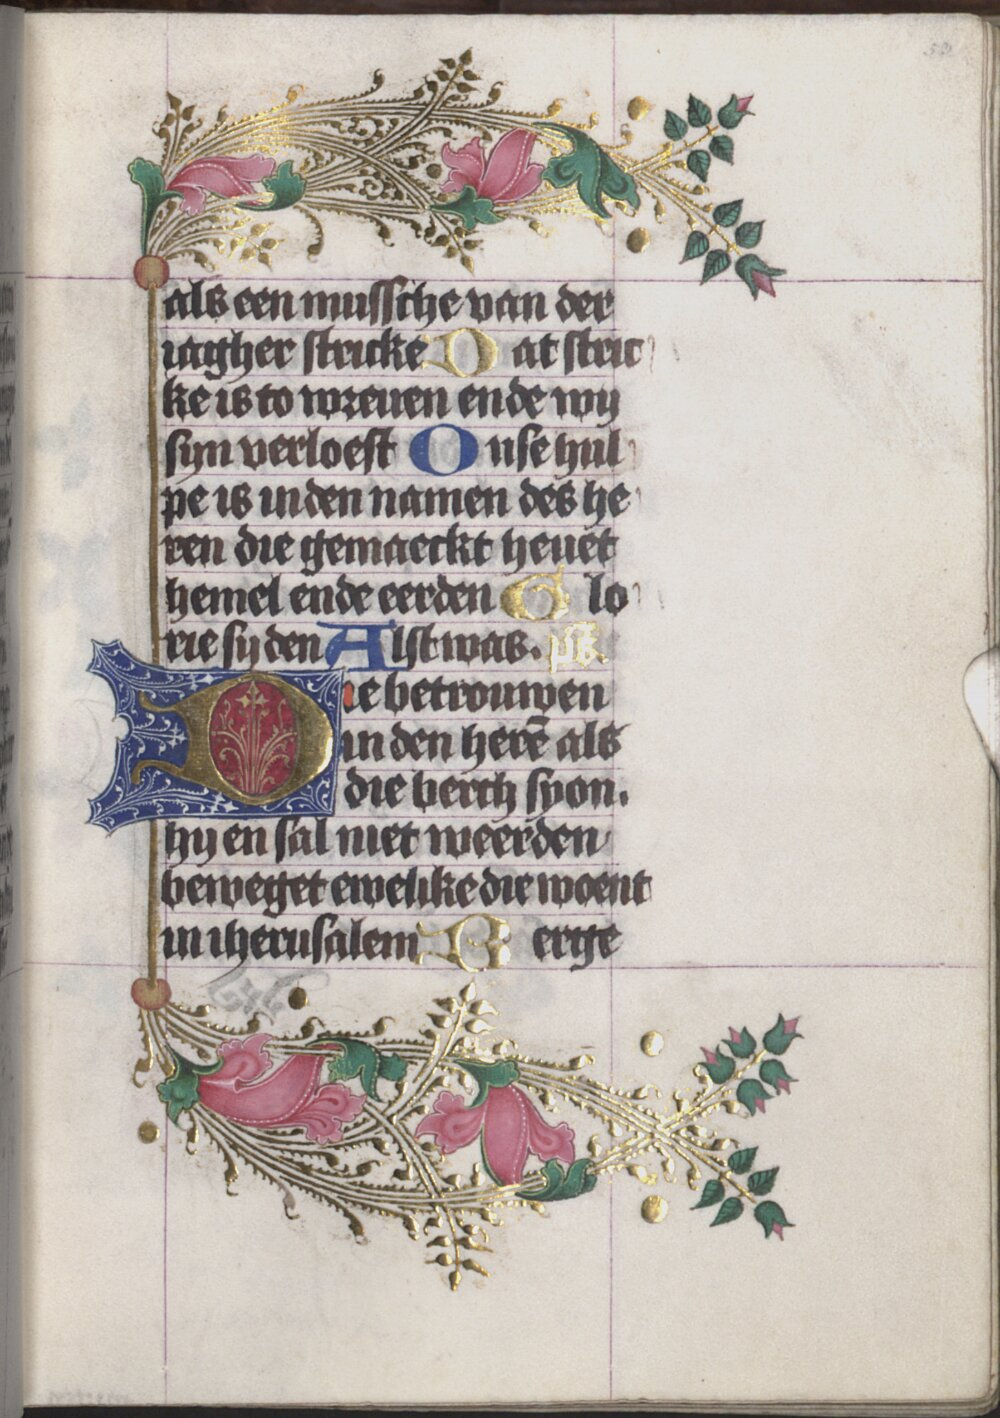 als een mussche van der
iagher stricke Dat stric
ke is to wreuen ende wy
syn verloest Onse hul
pe is in den namen des he
ren die gemaeckt heuet
hemel ende eerden Glo
rie sy den Alst was. ps.
Die betrouwen
in den herē als
die berch syon.
hy en sal niet weerden
beweget ewelike die woent
in iherusalem Berge